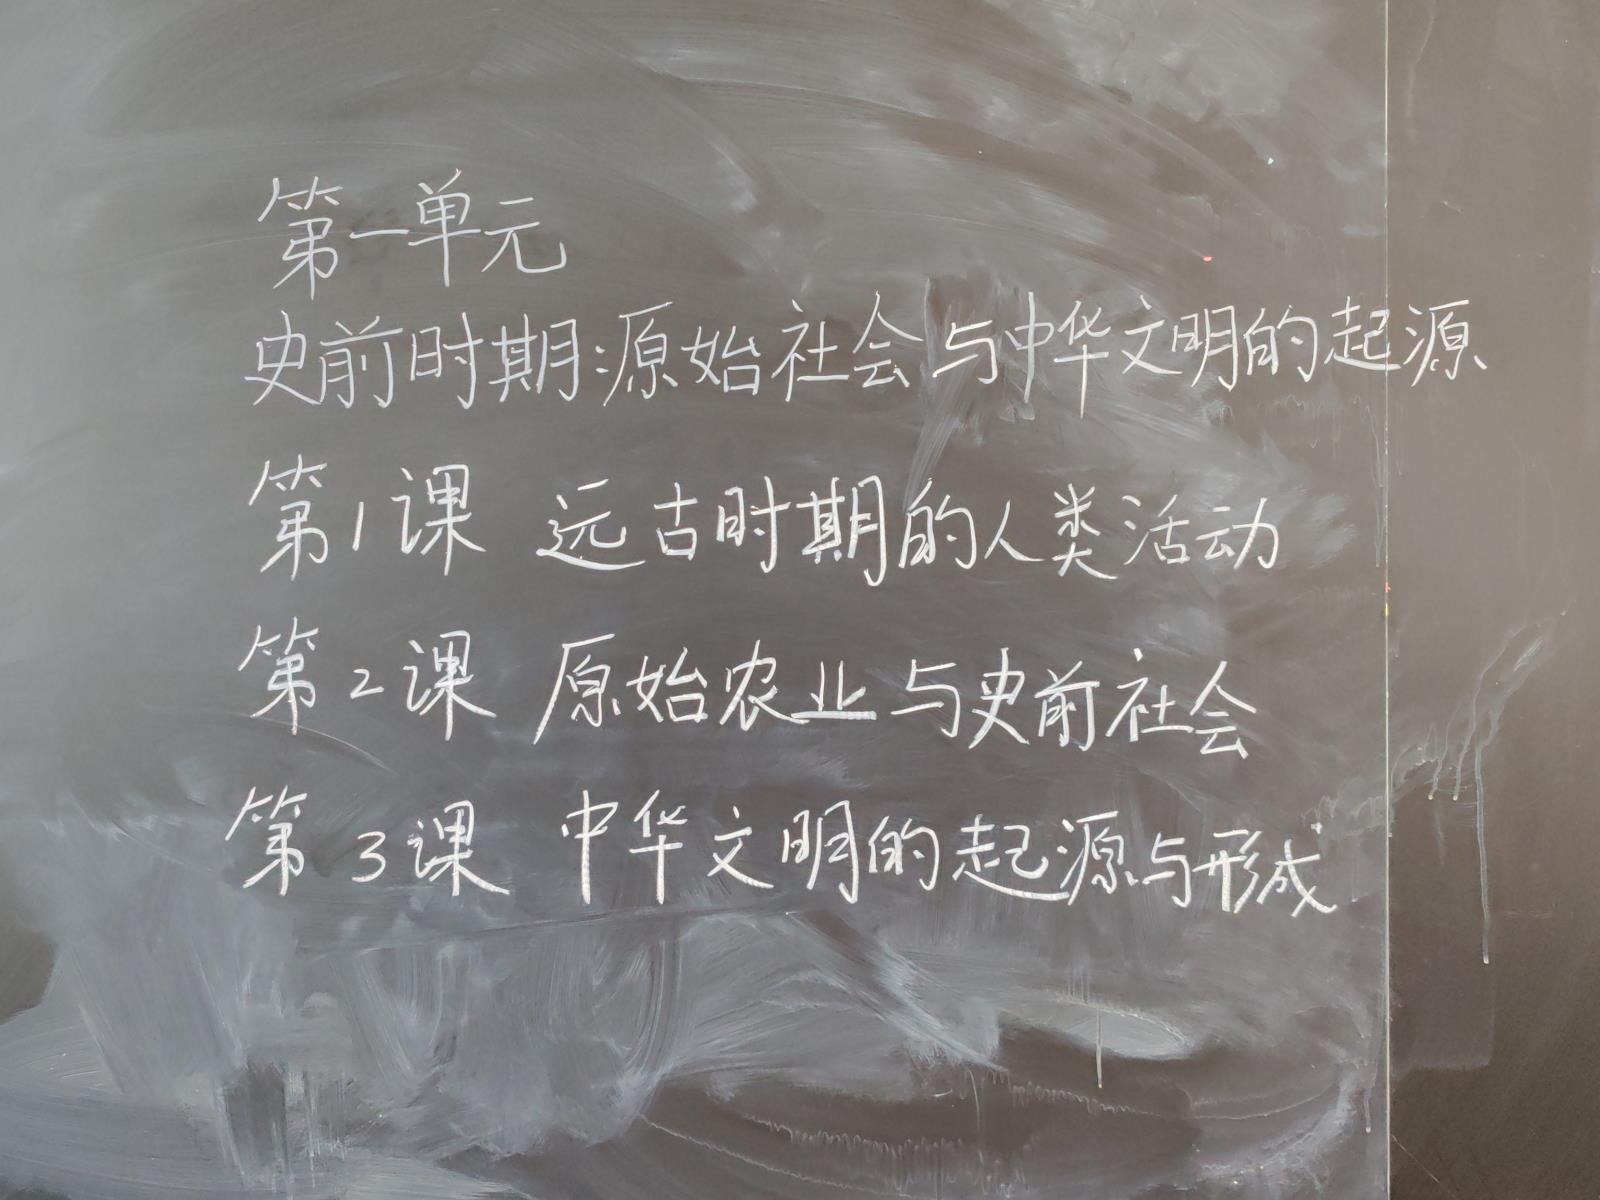 第一单元
史前时期:原始社会与中华文明的起源
第1课 远古时期的人类活动
第2课 原始农业与史前社会
第3课 中华文明的起源与形成